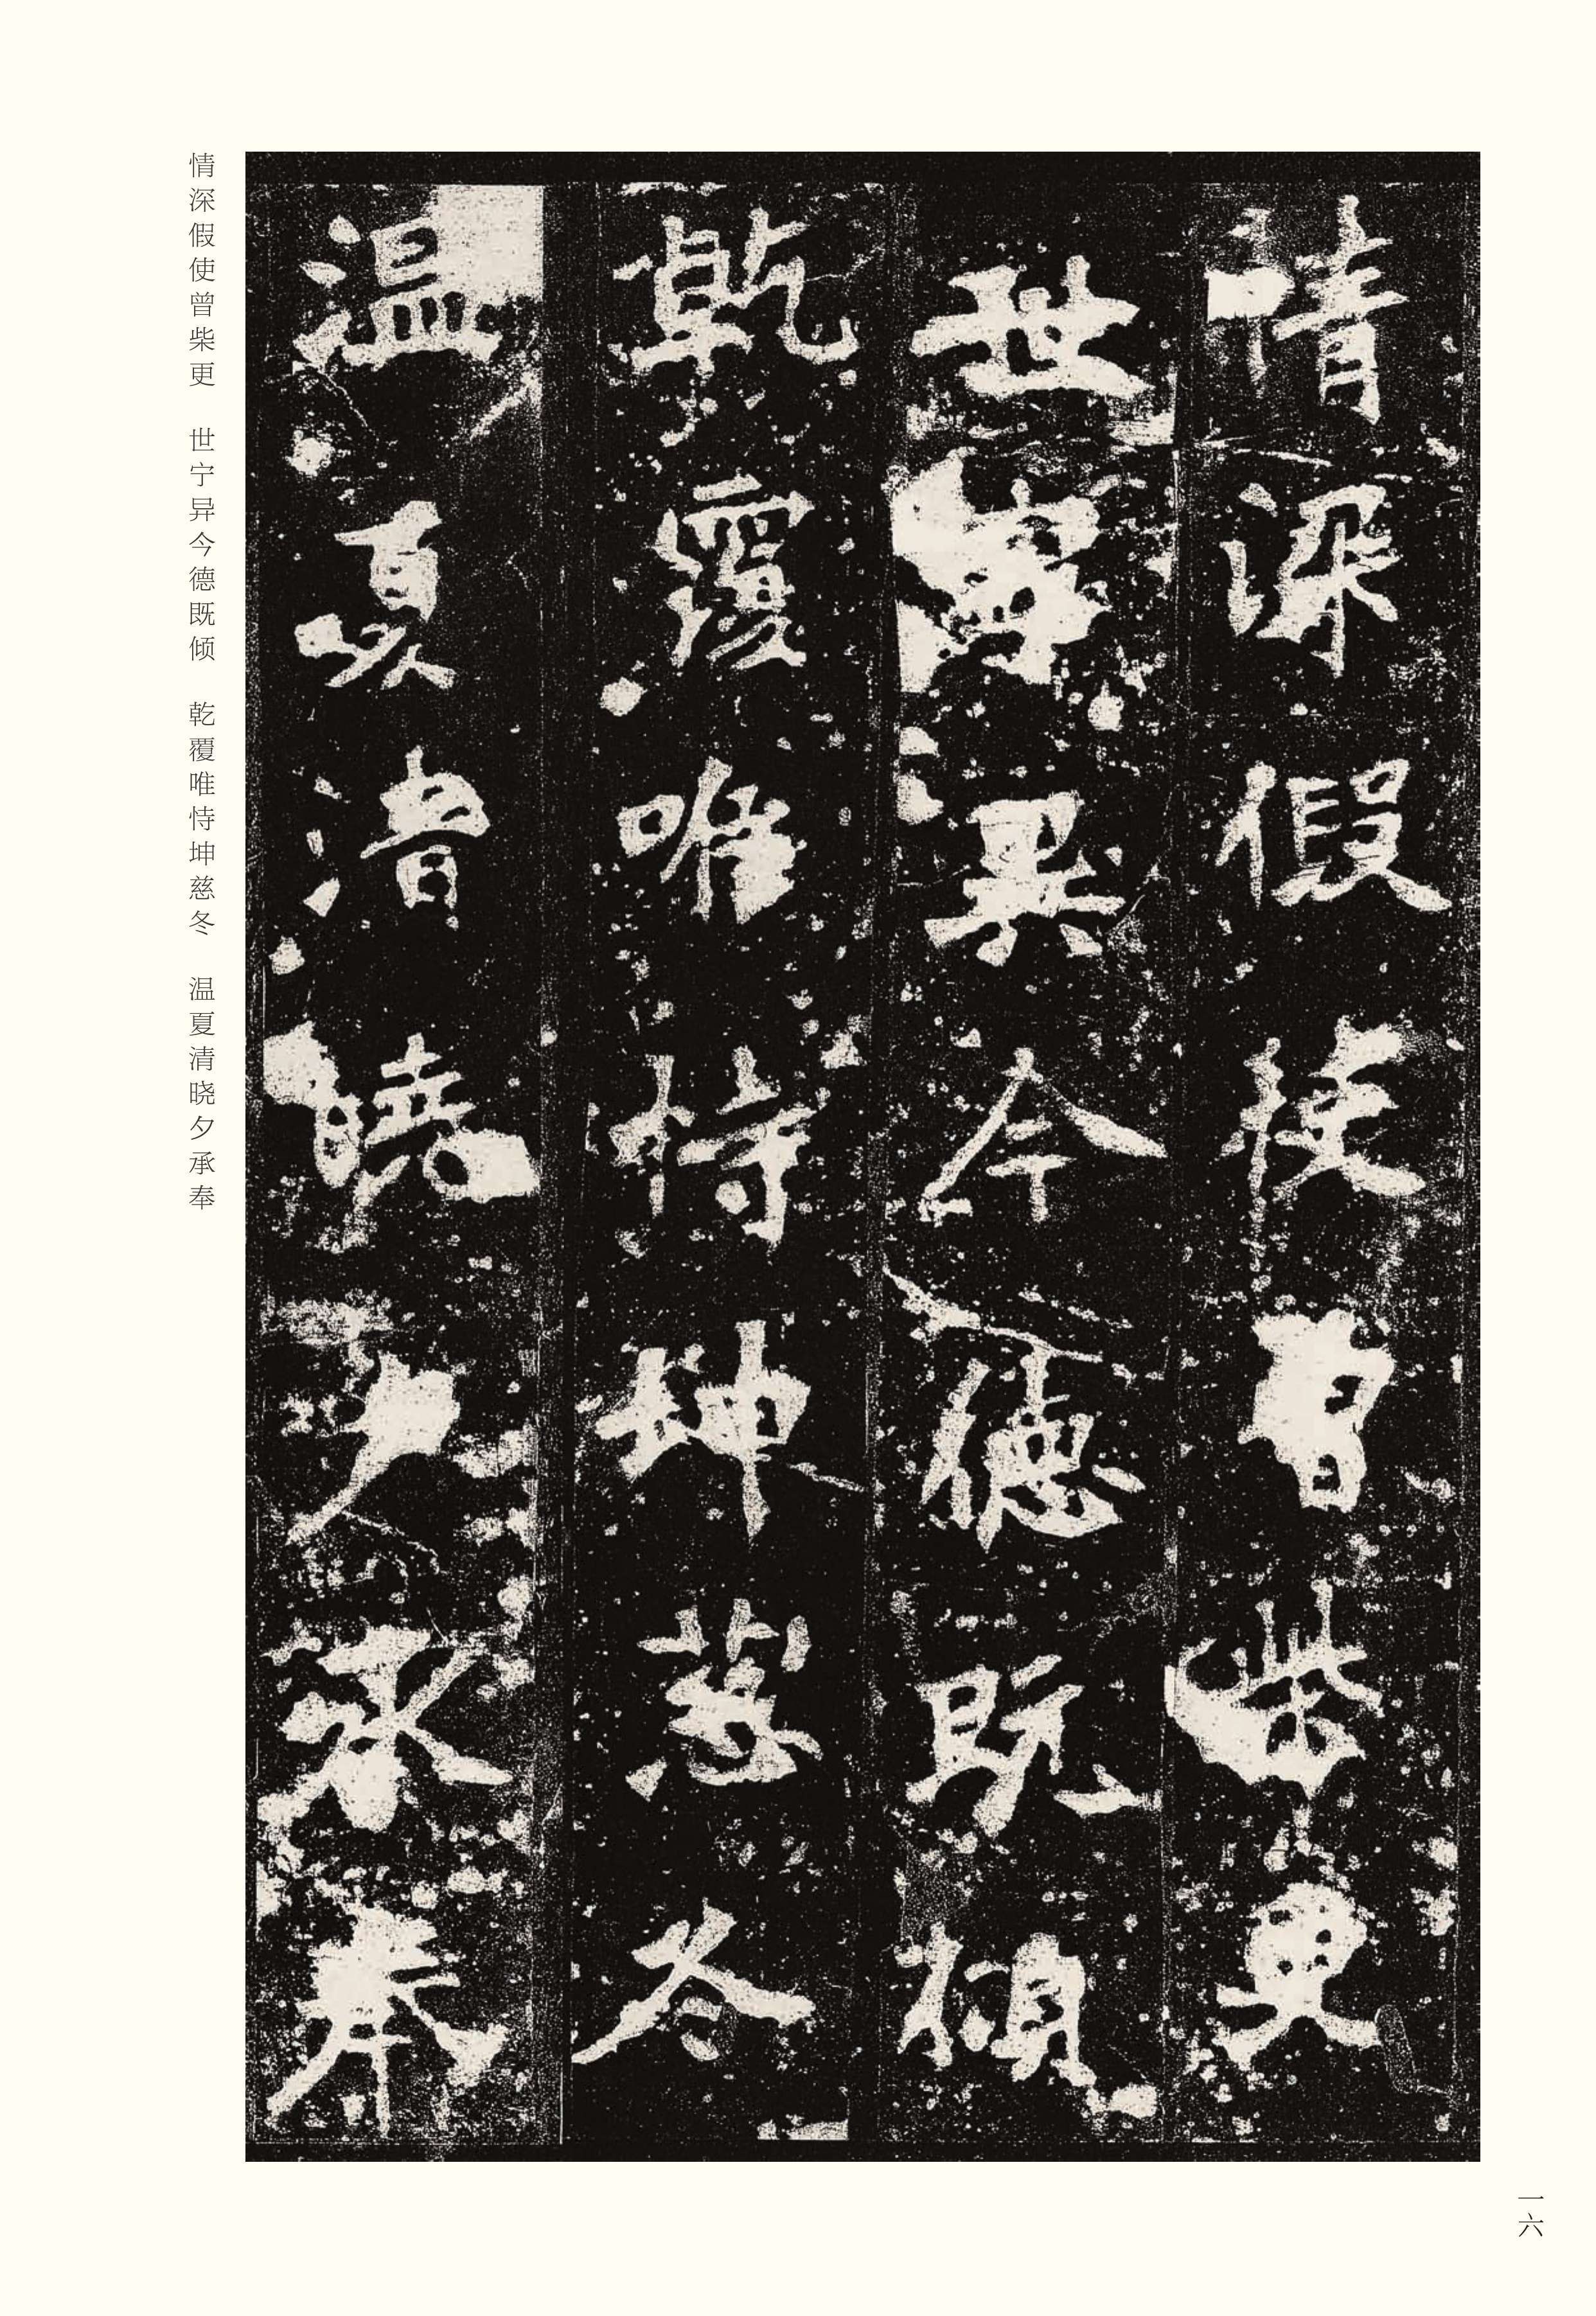 情深假使曾柴更
世寧異今德既傾
乾覆唯恃坤慈冬
温夏清曉夕承奉
情深假使曾柴更　世宁异今德既倾　乾覆唯恃坤慈冬　温夏清晓夕承奉
一六